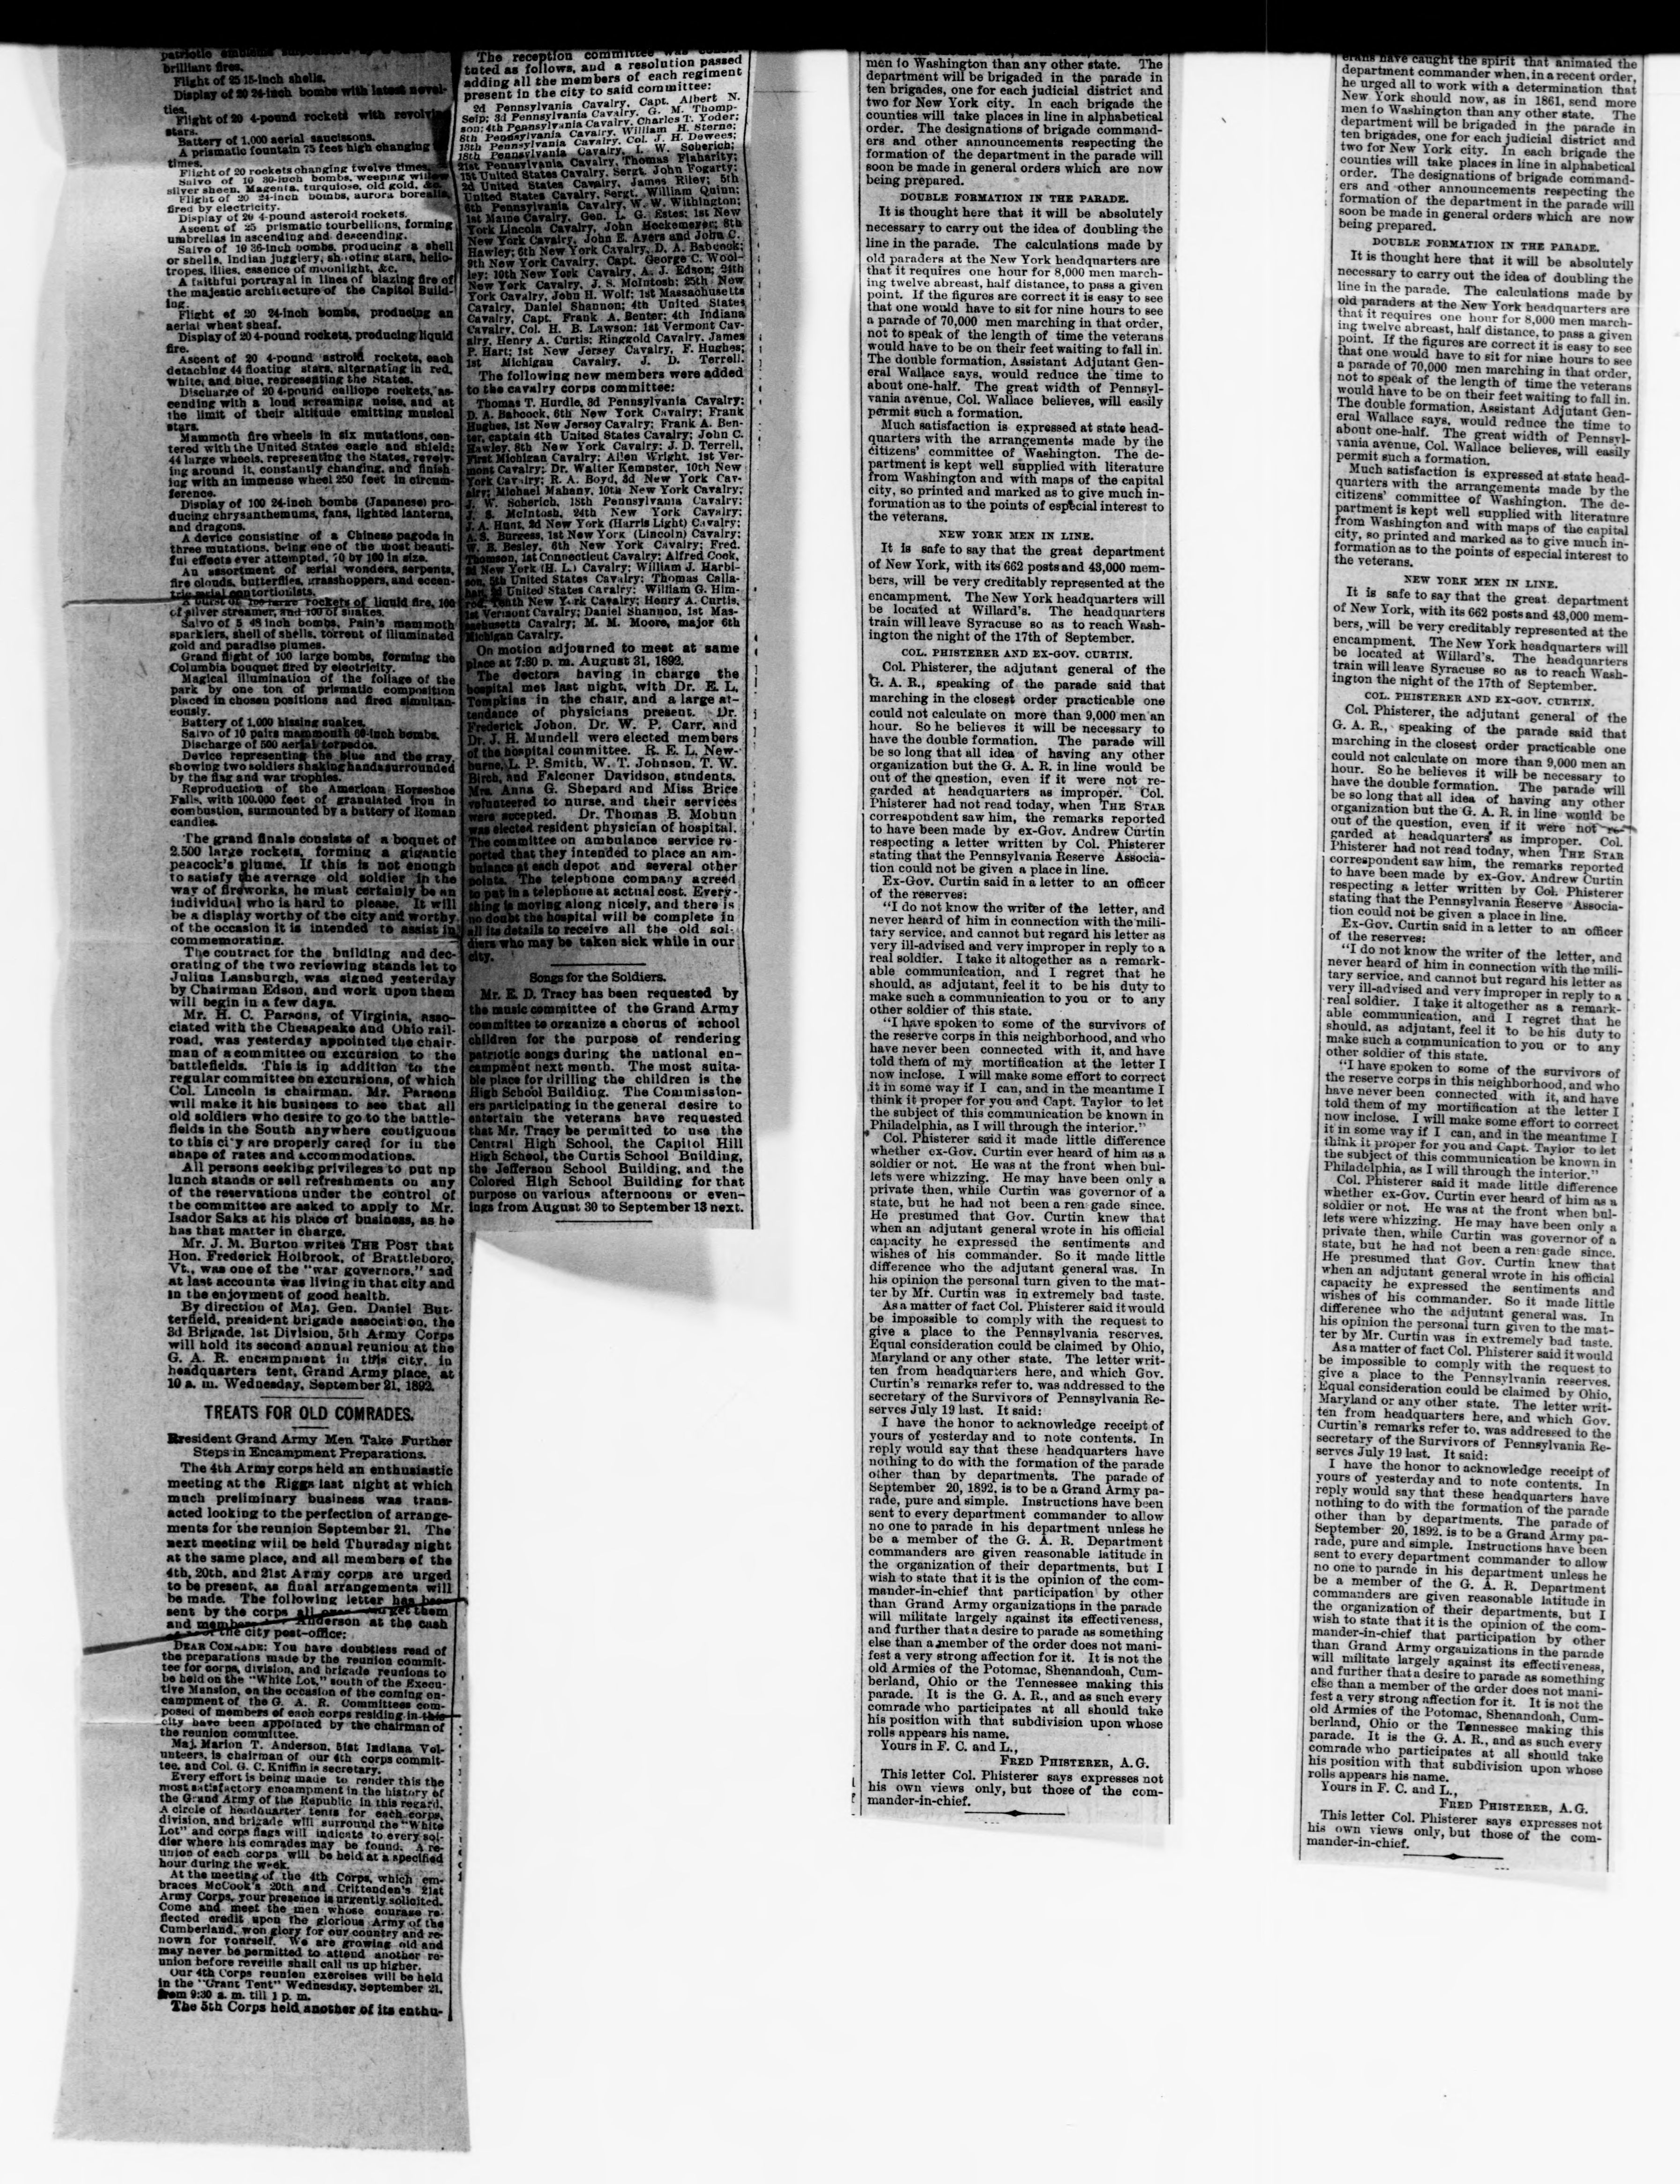 brilliant fires.
Flight of 25 15-inch shells.
Display of 20 24-inch bombs with latest novel-
ties.
Flight of 20 4-pound rockets with revolving
stars.
Battery of 1,000 aerial saucissons.
A prismatic fountain 75 feet high changing
times.
Flight of 20 rockets changing twelve times.
Salvo of 10 30-inch bombs, weeping willow
silver sheen. Magenta, turquoise, old gold, &c.
Flight of 20 24-inch bombs, aurora borealis,
fired by electricity.
Display of 20 4-pound asteroid rockets.
Ascent of 25 prismatic tourbellions, forming
umbrellas in ascending and descending.
Salvo of 10 36-inch bombs, producing a shell
or shells. Indian jugglery, shooting stars, helio-
tropes, lilies, essence of moonlight, &c.
A faithful portrayal in lines of blazing fire of
the majestic architecture of the Capitol Build-
ing.
Flight of 20 24-inch bombs, producing an
aerial wheat sheaf.
Display of 20 4-pound rockets, producing liquid
fire.
Ascent of 20 4-pound astroid rockets, each
detaching 44 floating stars, alternating in red,
white, and blue, representing the States.
Discharge of 20 4-pound calliope rockets, as-
cending with a loud screaming noise, and at
the limit of their altitude emitting musical
stars.
Mammoth fire wheels in six mutations, cen-
tered with the United States eagle and shield;
44 large wheels, representing the States, revolv-
ing around it, constantly changing, and finish-
ing with an immense wheel 250 feet in circum-
ference.
Display of 100 24-inch bombs (Japanese) pro-
ducing chrysanthemums, fans, lighted lanterns,
and dragons.
A device consisting of a Chinese pagoda in
three mutations, being one of the most beauti-
ful effects ever attempted, 70 by 100 in size.
An assortment of aerial wonders, serpents,
fire clouds, butterflies, grasshoppers, and eccen-
tric aerial contortionists.
A burst of 100 large rockets of liquid fire, 100
of silver streamer, and 100 of snakes.
Salvo of 5 48 inch bombs, Pain's mammoth
sparklers, shell of shells, torrent of illuminated
gold and paradise plumes.
Grand flight of 100 large bombs, forming the
Columbia bouquet fired by electricity.
Magical illumination of the foliage of the
park by one ton of prismatic composition
placed in chosen positions and fired simultan-
eously.
Battery of 1,000 hissing snakes.
Salvo of 10 pairs mammouth 60-inch bombs.
Discharge of 500 aerial torpedos.
Device representing the blue and the gray,
showing two soldiers shaking hands surrounded
by the flag and war trophies.
Reproduction of the American Horseshoe
Falls, with 100,000 feet of granulated iron in
combustion, surmounted by a battery of Roman
candles.
The grand finale consists of a boquet of
2,500 large rockets, forming a gigantic
peacock's plume. If this is not enough
to satisfy the average old soldier in the
way of fireworks, he must certainly be an
individual who is hard to please. It will
be a display worthy of the city and worthy
of the occasion it is intended to assist in
commemorating.
The contract for the building and dec-
orating of the two reviewing stands let to
Julius Lansburgh, was signed yesterday
by Chairman Edson, and work upon them
will begin in a few days.
Mr. H. C. Parsons, of Virginia, asso-
ciated with the Chesapeake and Ohio rail-
road, was yesterday appointed the chair-
man of a committee on excursion to the
battlefields. This is in addition to the
regular committee on excursions, of which
Col. Lincoln is chairman. Mr. Parsons
will make it his business to see that all
old soldiers who desire to go to the battle-
fields in the South anywhere contiguous
to this city are properly cared for in the
shape of rates and accommodations.
All persons seeking privileges to put up
lunch stands or sell refreshments on any
of the reservations under the control of
the committee are asked to apply to Mr.
Isador Saks at his place of business, as he
has that matter in charge.
Mr. J. M. Burton writes THE POST that
Hon. Frederick Holbrook, of Brattleboro,
Vt., was one of the "war governors," and
at last accounts was living in that city and
in the enjoyment of good health.
By direction of Maj. Gen. Daniel But-
terfield, president brigade association, the
3d Brigade, 1st Division, 5th Army Corps
will hold its second annual reunion at the
G. A. R. encampment in this city, in
headquarters tent, Grand Army place, at
10 a. m. Wednesday, September 21, 1892.
TREATS FOR OLD COMRADES.
Rresident Grand Army Men Take Further
Steps in Encampment Preparations.
The 4th Army corps held an enthusiastic
meeting at the Riggs last night at which
much preliminary business was trans-
acted looking to the perfection of arrange-
ments for the reunion September 21. The
next meeting will be held Thursday night
at the same place, and all members of the
4th, 20th, and 21st Army corps are urged
to be present, as final arrangements will
be made. The following letter has been
sent by the corps all get them
and Anderson at the cash
of the city post-office:
DEAR COMRADE: You have doubtless read of
the preparations made by the reunion commit-
tee for corps, division, and brigade reunions to
be held on the "White Lot," south of the Execu-
tive Mansion, on the occasion of the coming en-
campment of the G. A. R. Committees com-
posed of members of each corps residing in this
city have been appointed by the chairman of
the reunion committee.
Maj. Marion T. Anderson, 51st Indiana Vol-
unteers, is chairman of our 4th corps commit-
tee, and Col. G. C. Kniffin is secretary.
Every effort is being made to render this the
most satisfactory encampment in the history of
the Grand Army of the Republic in this regard.
A circle of headquarter tents for each corps,
division, and brigade will surround the "White
Lot" and corps flags will indicate to every sol-
dier where his comrades may be found. A re-
union of each corps will be held at a specified
hour during the week.
At the meeting of the 4th Corps, which em-
braces McCook's 20th and Crittenden's 21st
Army Corps, your presence is urgently solicited.
Come and meet the men whose courage re-
flected credit upon the glorious Army of the
Cumberland, won glory for our country and re-
nown for yourself. We are growing old and
may never be permitted to attend another re-
union before reveille shall call us up higher.
Our 4th Corps reunion exercises will be held
in the "Grant Tent" Wednesday, September 21,
from 9:30 a. m. till 1 p. m.
The 5th Corps held another of its enthu-
The reception committee was consti-
tuted as follows, and a resolution passed
adding all the members of each regiment
present in the city to said committee:
2d Pennsylvania Cavalry, Capt. Albert N.
Seip; 3d Pennsylvania Cavalry, G. M. Thomp-
son; 4th Pennsylvania Cavalry, Charles T. Yoder;
8th Pennsylvania Cavalry, William H. Sterne;
13th Pennsylvania Cavalry, Col. J. H. Dewees;
18th Pennsylvania Cavalry, L. W. Soherich;
21st Pennsylvania Cavalry, Thomas Flaharity;
1st United States Cavalry, Sergt. John Fogarty;
2d United States Cavalry, James Riley; 5th
United States Cavalry, Sergt. William Quinn;
6th Pennsylvania Cavalry, W. W. Withington;
1st Maine Cavalry, Gen. L. G. Estes; 1st New
York Lincoln Cavalry, John Heckemeyer; 8th
New York Cavalry, John E. Ayers and John C.
Hawley; 6th New York Cavalry, D. A. Babcock;
9th New York Cavalry, Capt. George C. Wool-
ley; 10th New York Cavalry, A. J. Edson; 24th
New York Cavalry, J. S. McIntosh; 25th New
York Cavalry, John H. Wolf; 1st Massachusetts
Cavalry, Daniel Shannon; 4th United States
Cavalry, Capt. Frank A. Benter; 4th Indiana
Cavalry, Col. H. B. Lawson; 1st Vermont Cav-
alry, Henry A. Curtis; Ringgold Cavalry, James
P. Hart; 1st New Jersey Cavalry, F. Hughes;
1st Michigan Cavalry, J. D. Terrell.
The following new members were added
to the cavalry corps committee:
Thomas T. Hurdle, 3d Pennsylvania Cavalry;
D. A. Babcock, 6th New York Cavalry; Frank
Hughes, 1st New Jersey Cavalry; Frank A. Ben-
ter, captain 4th United States Cavalry; John C.
Hawley, 8th New York Cavalry; J. D. Terrell,
First Michigan Cavalry; Allen Wright, 1st Ver-
mont Cavalry; Dr. Walter Kempster, 10th New
York Cavalry; R. A. Boyd, 3d New York Cav-
alry; Michael Mahany, 10th New York Cavalry;
J. W. Soherich, 18th Pennsylvania Cavalry;
J. S. McIntosh, 24th New York Cavalry;
J. A. Hunt, 2d New York (Harris Light) Cavalry;
A. S. Burgess, 1st New York (Lincoln) Cavalry;
W. B. Besley, 6th New York Cavalry; Fred.
Thomson, 1st Connecticut Cavalry; Alfred Cook,
2d New York (H. L.) Cavalry; William J. Harbi-
son, 5th United States Cavalry; Thomas Calla-
han, 2d United States Cavalry; William G. Him-
rod, Tenth New York Cavalry; Henry A. Curtis,
1st Vermont Cavalry; Daniel Shannon, 1st Mas-
sachusetts Cavalry; M. M. Moore, major 6th
Michigan Cavalry.
On motion adjourned to meet at same
place at 7:30 p. m. August 31, 1892.
The doctors having in charge the
hospital met last night, with Dr. E. L.
Tompkins in the chair, and a large at-
tendance of physicians present. Dr.
Frederick Johon. Dr. W. P. Carr, and
Dr. J. H. Mundell were elected members
of the hospital committee. R. E. L. New-
burne, L. P. Smith, W. T. Johnson, T. W.
Birch, and Falconer Davidson, students.
Mrs. Anna G. Shepard and Miss Brice
volunteered to nurse, and their services
were accepted. Dr. Thomas B. Mohun
was elected resident physician of hospital.
The committee on ambulance service re-
ported that they intended to place an am-
bulance at each depot and several other
points. The telephone company agreed
to put in a telephone at actual cost. Every-
thing is moving along nicely, and there is
no doubt the hospital will be complete in
all its details to receive all the old sol-
diers who may be taken sick while in our
city.
Songs for the Soldiers.
Mr. E. D. Tracy has been requested by
the music committee of the Grand Army
committee to organize a chorus of school
children for the purpose of rendering
patriotic songs during the national en-
campment next month. The most suita-
ble place for drilling the children is the
High School Building. The Commission-
ers participating in the general desire to
entertain the veterans have requested
that Mr. Tracy be permitted to use the
Central High School, the Capitol Hill
High School, the Curtis School Building,
the Jefferson School Building, and the
Colored High School Building for that
purpose on various afternoons or even-
ings from August 30 to September 13 next.
men to Washington than any other state. The
department will be brigaded in the parade in
ten brigades, one for each judicial district and
two for New York city. In each brigade the
counties will take places in line in alphabetical
order. The designations of brigade command-
ers and other announcements respecting the
formation of the department in the parade will
soon be made in general orders which are now
being prepared.
DOUBLE FORMATION IN THE PARADE.
It is thought here that it will be absolutely
necessary to carry out the idea of doubling the
line in the parade. The calculations made by
old paraders at the New York headquarters are
that it requires one hour for 8,000 men march-
ing twelve abreast, half distance, to pass a given
point. If the figures are correct it is easy to see
that one would have to sit for nine hours to see
a parade of 70,000 men marching in that order,
not to speak of the length of time the veterans
would have to be on their feet waiting to fall in.
The double formation, Assistant Adjutant Gen-
eral Wallace says, would reduce the time to
about one-half. The great width of Pennsyl-
vania avenue, Col. Wallace believes, will easily
permit such a formation.
Much satisfaction is expressed at state head-
quarters with the arrangements made by the
citizens' committee of Washington. The de-
partment is kept well supplied with literature
from Washington and with maps of the capital
city, so printed and marked as to give much in-
formation as to the points of especial interest to
the veterans.
NEW YORK MEN IN LINE.
It is safe to say that the great department
of New York, with its 662 posts and 43,000 mem-
bers, will be very creditably represented at the
encampment. The New York headquarters will
be located at Willard's. The headquarters
train will leave Syracuse so as to reach Wash-
ington the night of the 17th of September.
COL. PHISTERER AND EX-GOV. CURTIN.
Col. Phisterer, the adjutant general of the
G. A. R., speaking of the parade said that
marching in the closest order practicable one
could not calculate on more than 9,000 men an
hour. So he believes it will be necessary to
have the double formation. The parade will
be so long that all idea of having any other
organization but the G. A. R. in line would be
out of the question, even if it were not re-
garded at headquarters as improper. Col.
Phisterer had not read today, when THE STAR
correspondent saw him, the remarks reported
to have been made by ex-Gov. Andrew Curtin
respecting a letter written by Col. Phisterer
stating that the Pennsylvania Reserve Associa-
tion could not be given a place in line.
Ex-Gov. Curtin said in a letter to an officer
of the reserves:
"I do not know the writer of the letter, and
never heard of him in connection with the mili-
tary service, and cannot but regard his letter as
very ill-advised and very improper in reply to a
real soldier. I take it altogether as a remark-
able communication, and I regret that he
should, as adjutant, feel it to be his duty to
make such a communication to you or to any
other soldier of this state.
"I have spoken to some of the survivors of
the reserve corps in this neighborhood, and who
have never been connected with it, and have
told them of my mortification at the letter I
now inclose. I will make some effort to correct
it in some way if I can, and in the meantime I
think it proper for you and Capt. Taylor to let
the subject of this communication be known in
Philadelphia, as I will through the interior."
Col. Phisterer said it made little difference
whether ex-Gov. Curtin ever heard of him as a
soldier or not. He was at the front when bul-
lets were whizzing. He may have been only a
private then, while Curtin was governor of a
state, but he had not been a ren gade since.
He presumed that Gov. Curtin knew that
when an adjutant general wrote in his official
capacity he expressed the sentiments and
wishes of his commander. So it made little
difference who the adjutant general was. In
his opinion the personal turn given to the mat-
ter by Mr. Curtin was in extremely bad taste.
As a matter of fact Col. Phisterer said it would
be impossible to comply with the request to
give a place to the Pennsylvania reserves.
Equal consideration could be claimed by Ohio,
Maryland or any other state. The letter writ-
ten from headquarters here, and which Gov.
Curtin's remarks refer to, was addressed to the
secretary of the Survivors of Pennsylvania Re-
serves July 19 last. It said:
I have the honor to acknowledge receipt of
yours of yesterday and to note contents. In
reply would say that these headquarters have
nothing to do with the formation of the parade
other than by departments. The parade of
September 20, 1892, is to be a Grand Army pa-
rade, pure and simple. Instructions have been
sent to every department commander to allow
no one to parade in his department unless he
be a member of the G. A. R. Department
commanders are given reasonable latitude in
the organization of their departments, but I
wish to state that it is the opinion of the com-
mander-in-chief that participation by other
than Grand Army organizations in the parade
will militate largely against its effectiveness,
and further that a desire to parade as something
else than a member of the order does not mani-
fest a very strong affection for it. It is not the
old Armies of the Potomac, Shenandoah, Cum-
berland, Ohio or the Tennessee making this
parade. It is the G. A. R., and as such every
comrade who participates at all should take
his position with that subdivision upon whose
rolls appears his name.
Yours in F. C. and L.,
FRED PHISTERER, A.G.
This letter Col. Phisterer says expresses not
his own views only, but those of the com-
mander-in-chief.
erans have caught the spirit that animated the
department commander when, in a recent order,
he urged all to work with a determination that
New York should now, as in 1861, send more
men to Washington than any other state. The
department will be brigaded in the parade in
ten brigades, one for each judicial district and
two for New York city. In each brigade the
counties will take places in line in alphabetical
order. The designations of brigade command-
ers and other announcements respecting the
formation of the department in the parade will
soon be made in general orders which are now
being prepared.
DOUBLE FORMATION IN THE PARADE.
It is thought here that it will be absolutely
necessary to carry out the idea of doubling the
line in the parade. The calculations made by
old paraders at the New York headquarters are
that it requires one hour for 8,000 men march-
ing twelve abreast, half distance, to pass a given
point. If the figures are correct it is easy to see
that one would have to sit for nine hours to see
a parade of 70,000 men marching in that order,
not to speak of the length of time the veterans
would have to be on their feet waiting to fall in.
The double formation, Assistant Adjutant Gen-
eral Wallace says, would reduce the time to
about one-half. The great width of Pennsyl-
vania avenue, Col. Wallace believes, will easily
permit such a formation.
Much satisfaction is expressed at state head-
quarters with the arrangements made by the
citizens' committee of Washington. The de-
partment is kept well supplied with literature
from Washington and with maps of the capital
city, so printed and marked as to give much in-
formation as to the points of especial interest to
the veterans.
NEW YORK MEN IN LINE.
It is safe to say that the great department
of New York, with its 662 posts and 43,000 mem-
bers, will be very creditably represented at the
encampment. The New York headquarters will
be located at Willard's. The headquarters
train will leave Syracuse so as to reach Wash-
ington the night of the 17th of September.
COL. PHISTERER AND EX-GOV. CURTIN.
Col. Phisterer, the adjutant general of the
G. A. R., speaking of the parade said that
marching in the closest order practicable one
could not calculate on more than 9,000 men an
hour. So he believes it will be necessary to
have the double formation. The parade will
be so long that all idea of having any other
organization but the G. A. R. in line would be
out of the question, even if it were not re-
garded at headquarters as improper. Col.
Phisterer had not read today, when THE STAR
correspondent saw him, the remarks reported
to have been made by ex-Gov. Andrew Curtin
respecting a letter written by Col. Phisterer
stating that the Pennsylvania Reserve Associa-
tion could not be given a place in line.
Ex-Gov. Curtin said in a letter to an officer
of the reserves:
"I do not know the writer of the letter, and
never heard of him in connection with the mili-
tary service, and cannot but regard his letter as
very ill-advised and very improper in reply to a
real soldier. I take it altogether as a remark-
able communication, and I regret that he
should, as adjutant, feel it to be his duty to
make such a communication to you or to any
other soldier of this state.
"I have spoken to some of the survivors of
the reserve corps in this neighborhood, and who
have never been connected with it, and have
told them of my mortification at the letter I
now inclose. I will make some effort to correct
it in some way if I can, and in the meantime I
think it proper for you and Capt. Taylor to let
the subject of this communication be known in
Philadelphia, as I will through the interior."
Col. Phisterer said it made little difference
whether ex-Gov. Curtin ever heard of him as a
soldier or not. He was at the front when bul-
lets were whizzing. He may have been only a
private then, while Curtin was governor of a
state, but he had not been a ren gade since.
He presumed that Gov. Curtin knew that
when an adjutant general wrote in his official
capacity he expressed the sentiments and
wishes of his commander. So it made little
difference who the adjutant general was. In
his opinion the personal turn given to the mat-
ter by Mr. Curtin was in extremely bad taste.
As a matter of fact Col. Phisterer said it would
be impossible to comply with the request to
give a place to the Pennsylvania reserves.
Equal consideration could be claimed by Ohio,
Maryland or any other state. The letter writ-
ten from headquarters here, and which Gov.
Curtin's remarks refer to, was addressed to the
secretary of the Survivors of Pennsylvania Re-
serves July 19 last. It said:
I have the honor to acknowledge receipt of
yours of yesterday and to note contents. In
reply would say that these headquarters have
nothing to do with the formation of the parade
other than by departments. The parade of
September 20, 1892, is to be a Grand Army pa-
rade, pure and simple. Instructions have been
sent to every department commander to allow
no one to parade in his department unless he
be a member of the G. A. R. Department
commanders are given reasonable latitude in
the organization of their departments, but I
wish to state that it is the opinion of the com-
mander-in-chief that participation by other
than Grand Army organizations in the parade
will militate largely against its effectiveness,
and further that a desire to parade as something
else than a member of the order does not mani-
fest a very strong affection for it. It is not the
old Armies of the Potomac, Shenandoah, Cum-
berland, Ohio or the Tennessee making this
parade. It is the G. A. R., and as such every
comrade who participates at all should take
his position with that subdivision upon whose
rolls appears his name.
Yours in F. C. and L.,
FRED PHISTERER, A.G.
This letter Col. Phisterer says expresses not
his own views only, but those of the com-
mander-in-chief.